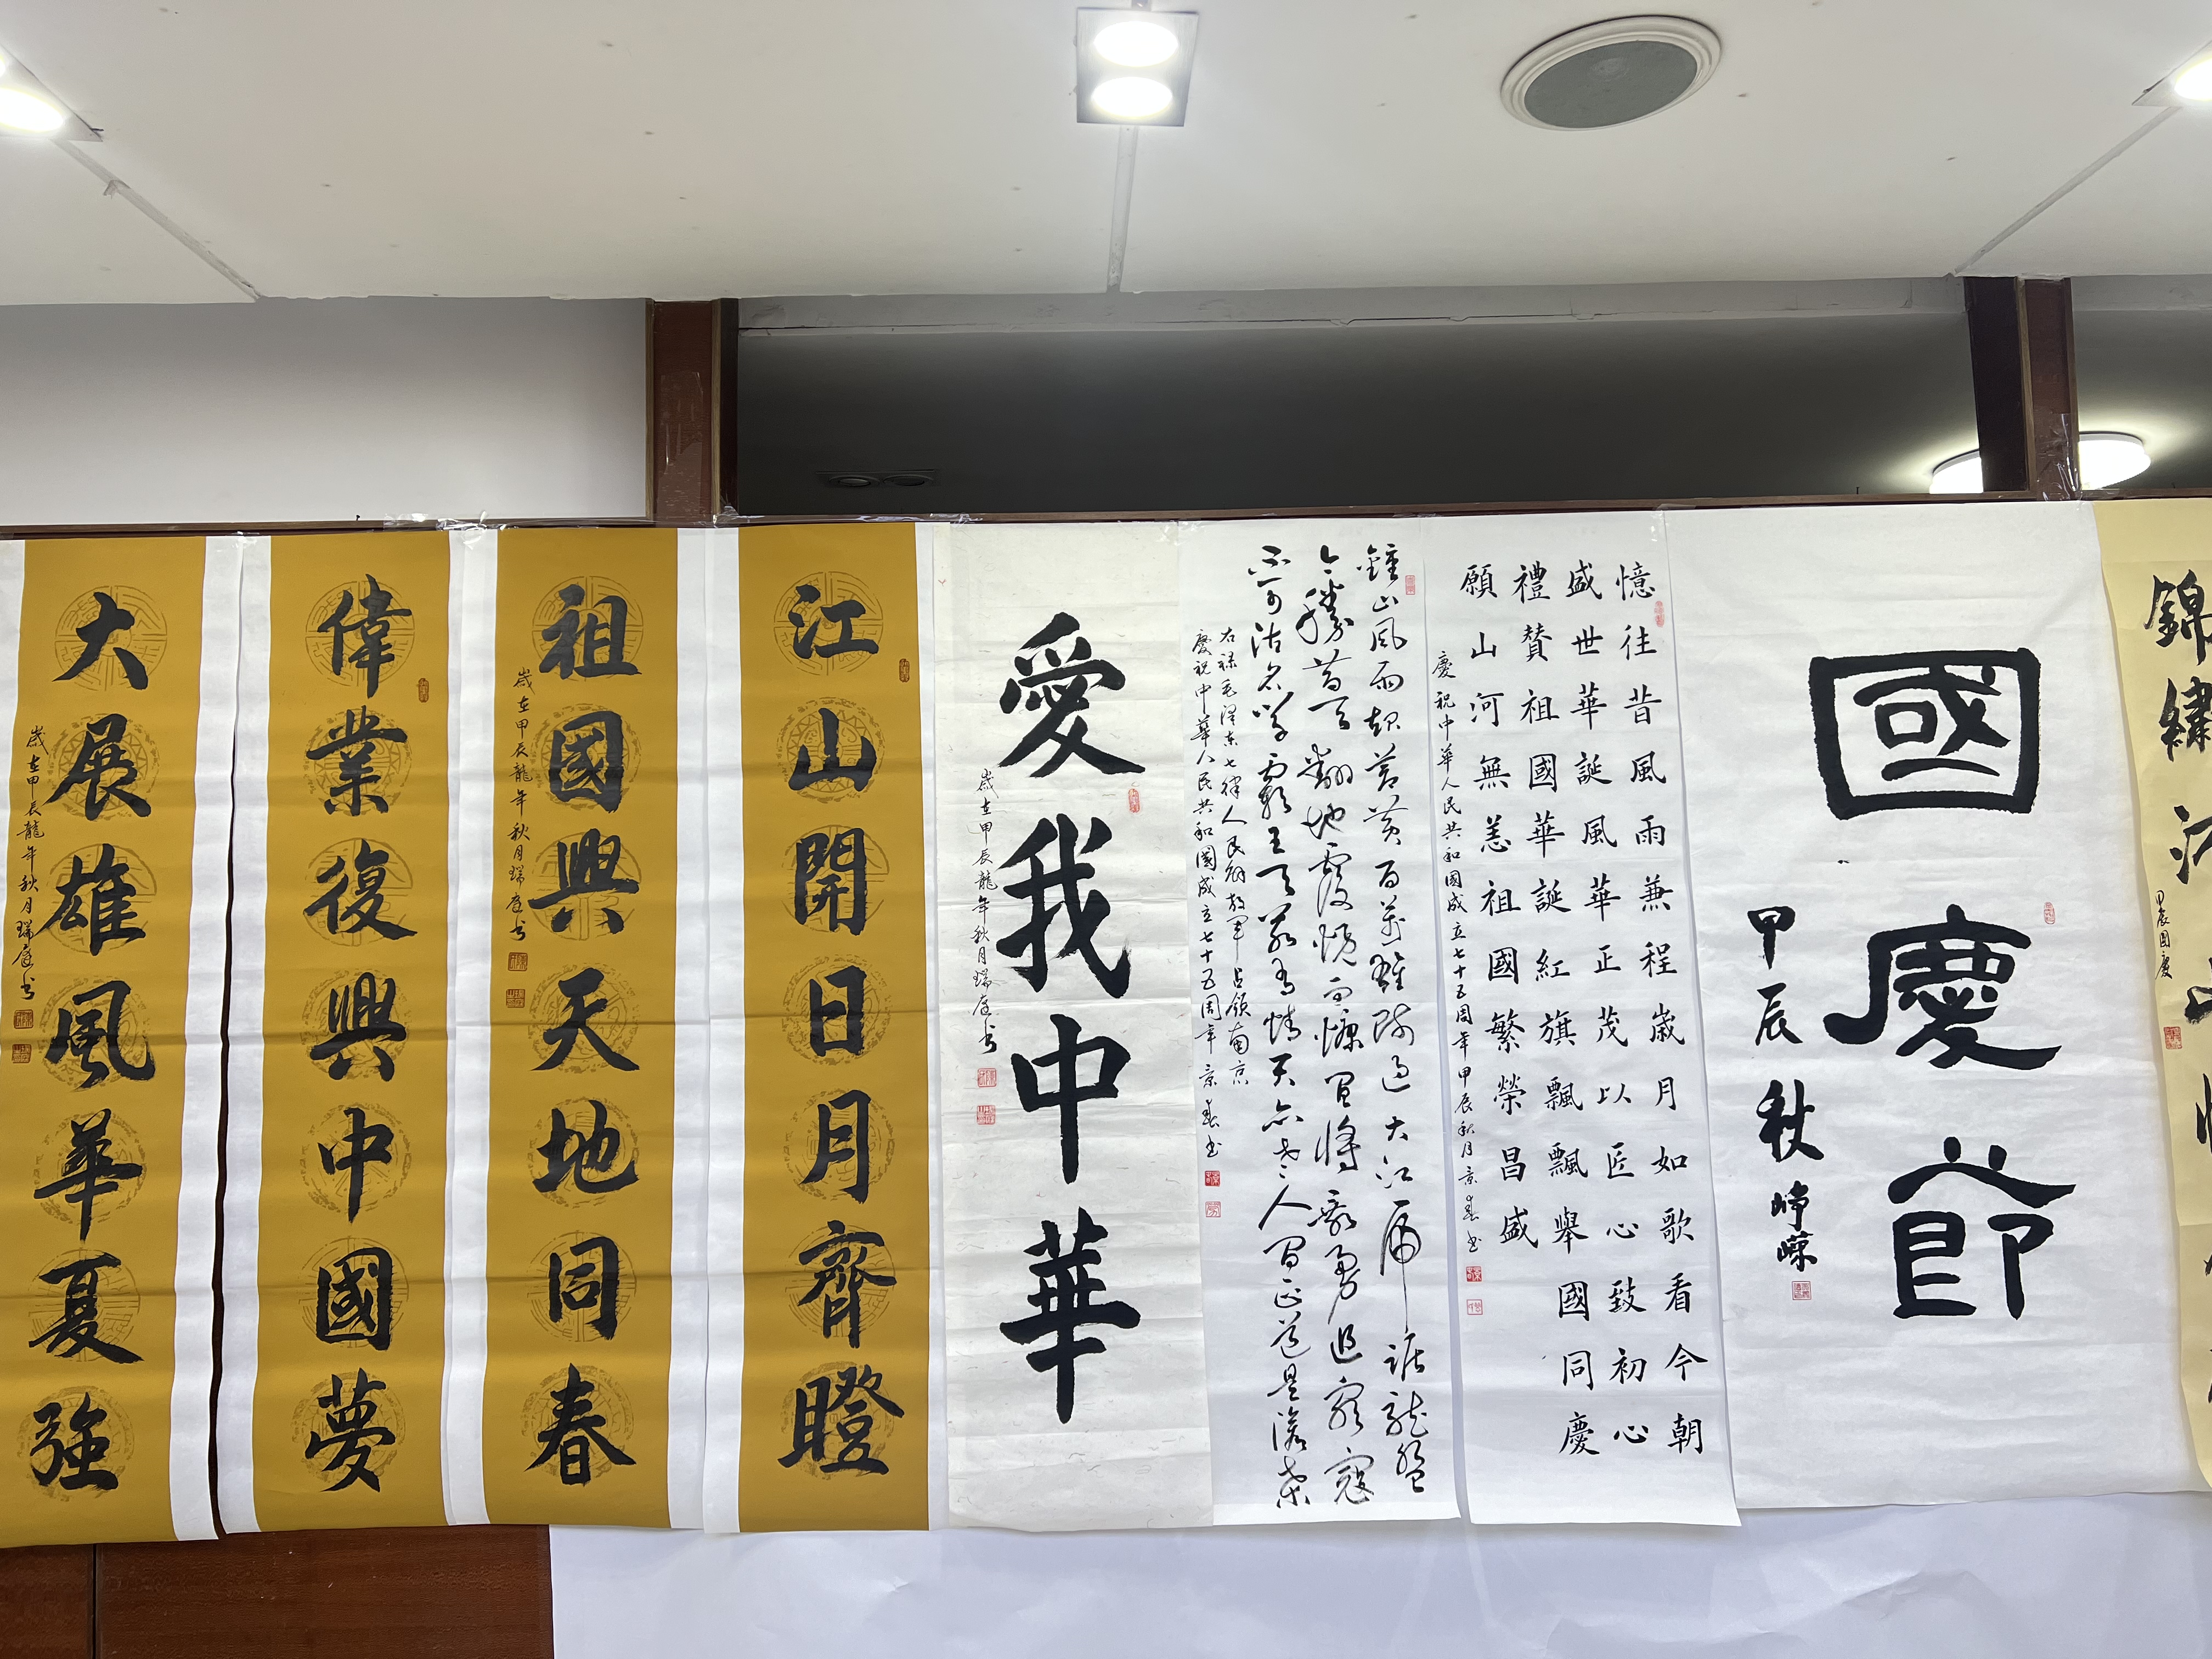 錦繡江山
甲辰国慶
國慶節
甲辰秋 崢嶸
憶往昔風雨兼程歲月如歌看今朝
盛世華誕風華正茂以匠心致初心
禮贊祖國華誕紅旗飄飄舉國同慶
願山河無恙祖國繁榮昌盛
慶祝中華人民共和國成立七十五周年甲辰秋月景春书
鍾山風雨起蒼黄百萬雄師過大江虎踞龍盤
今勝昔天翻地覆慨而慷宜將剩勇追窮寇
不可沽名學霸王天若有情天亦老人間正道是滄桑
右録毛澤東七律人民解放軍占領南京
慶祝中華人民共和國成立七十五周年景春书
愛我中華
歲在甲辰龍年秋月瑞庭书
江山開日月齊瞪
祖國興天地同春
歲在甲辰龍年秋月瑞庭书
偉業復興中國夢
大展雄風華夏強
歲在甲辰龍年秋月瑞庭书